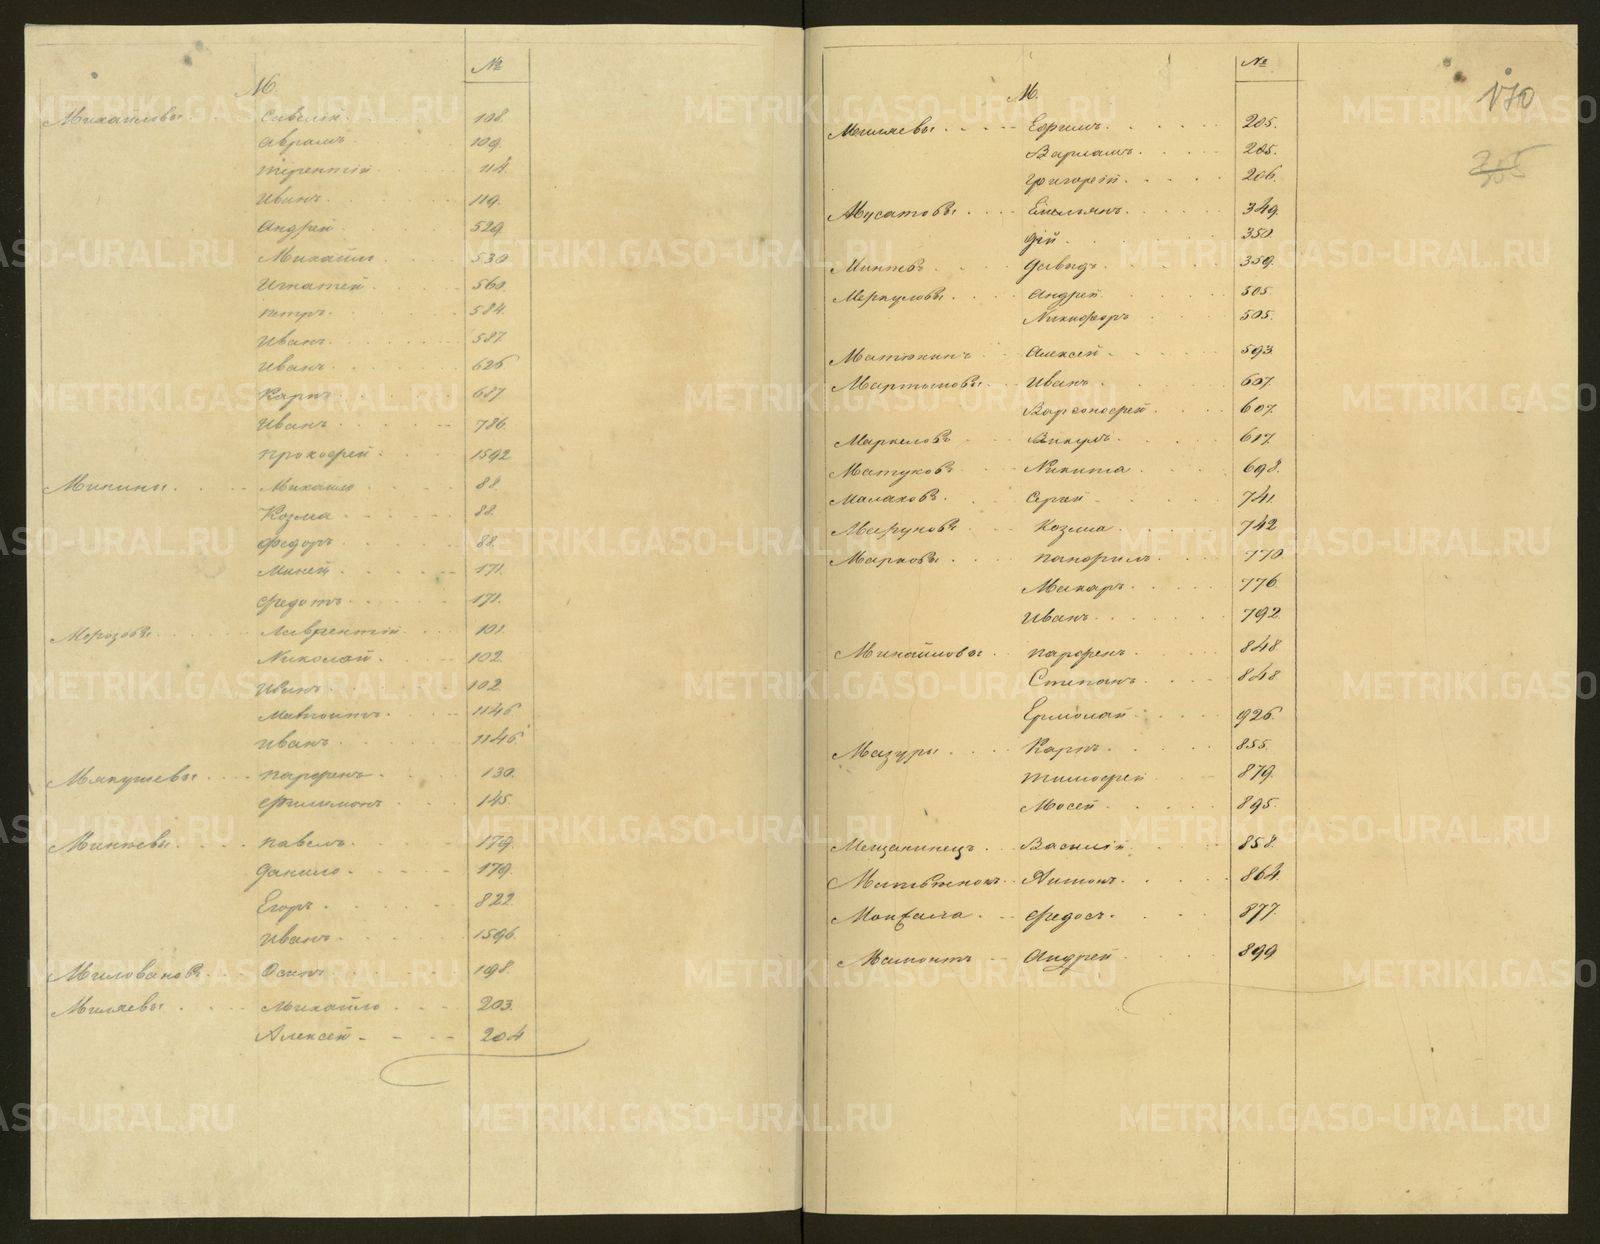 №
М.
Михайловы Савелiй 108.
Аврамъ 109.
Терентiй 114.
Иванъ 119.
Андрей 529.
Михайло 530.
Игнатей 560.
Петръ 584.
Иванъ 587.
Иванъ 626
Карпъ 687.
Иванъ 786
Прокофей 1592
Микины Михайло 88.
Козма 88.
Федоръ 88.
Миней 171.
Федотъ 171.
Морозовы Лаврентiй 101.
Николай 102
Иванъ 102
1146
Иванъ 1146
Мякушевы Парфенъ 130.
Филимонъ 145.
Минѣевы Павелъ 179.
Данило 179.
Егоръ 822.
Иванъ 1596.
Миловановъ Осипъ 198.
Миляевы Михайло 203.
Алексей 204
№
М.
170
Миляевы Ефимъ 205.
Варламъ 205.
Григорей 206.
Мусатовы Емельянъ 349.
Фей 350.
Давидъ 359.
Меркуловы Андрей 505.
Никифоръ 505.
Матюкинъ Алексей 593
Мартыновы Иванъ 607.
Варсонофей 607.
Маркеловъ Викулъ 617.
Матуковъ Никита 698.
Малаховъ Сергей 741.
Козма 742
Марковы Панфилъ 770
Макаръ 776
Иванъ 792.
Михайловы Парфенъ 848
Степанъ 848
Ермолай 926.
Мазуры Карпъ 855.
Тимофей 879.
Мосей 895.
Мещанинецъ Василiй 858.
Антонъ 864.
Федосъ 877.
Мамонтъ Андрей 899
METRIKI.GASO-URAL.RU